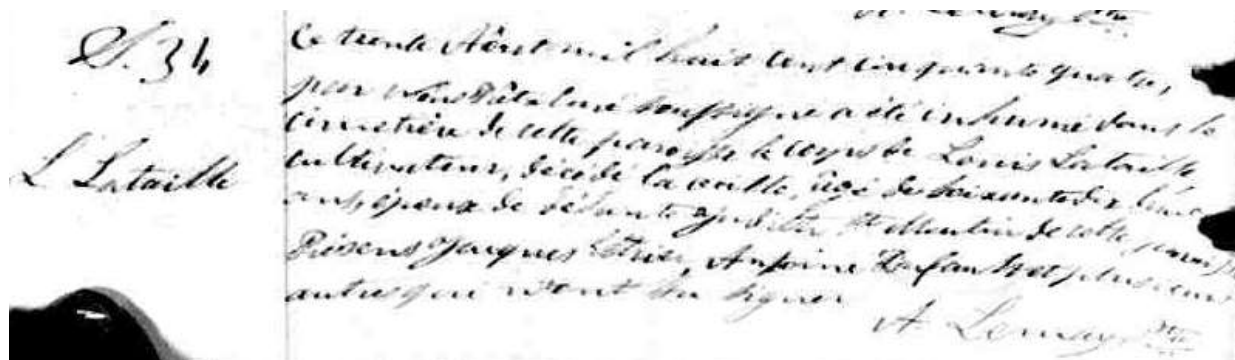 A. Lemay Ptre
S. 34
L Lataille
Ce trente Août mil huit cent cinquante quatre,
par Nous Prêtre Curé soussigné a été inhumé dans le
cimetière de cette paroisse le corps de Louis Lataille
cultivateur, décédé la veille, âgé de soixante dix
ans, époux de défunte Judith St Martin de cette paroisse
Présens Jacques Antoine et plusieurs
autres qui n'ont su signer
A. Lemay Ptre